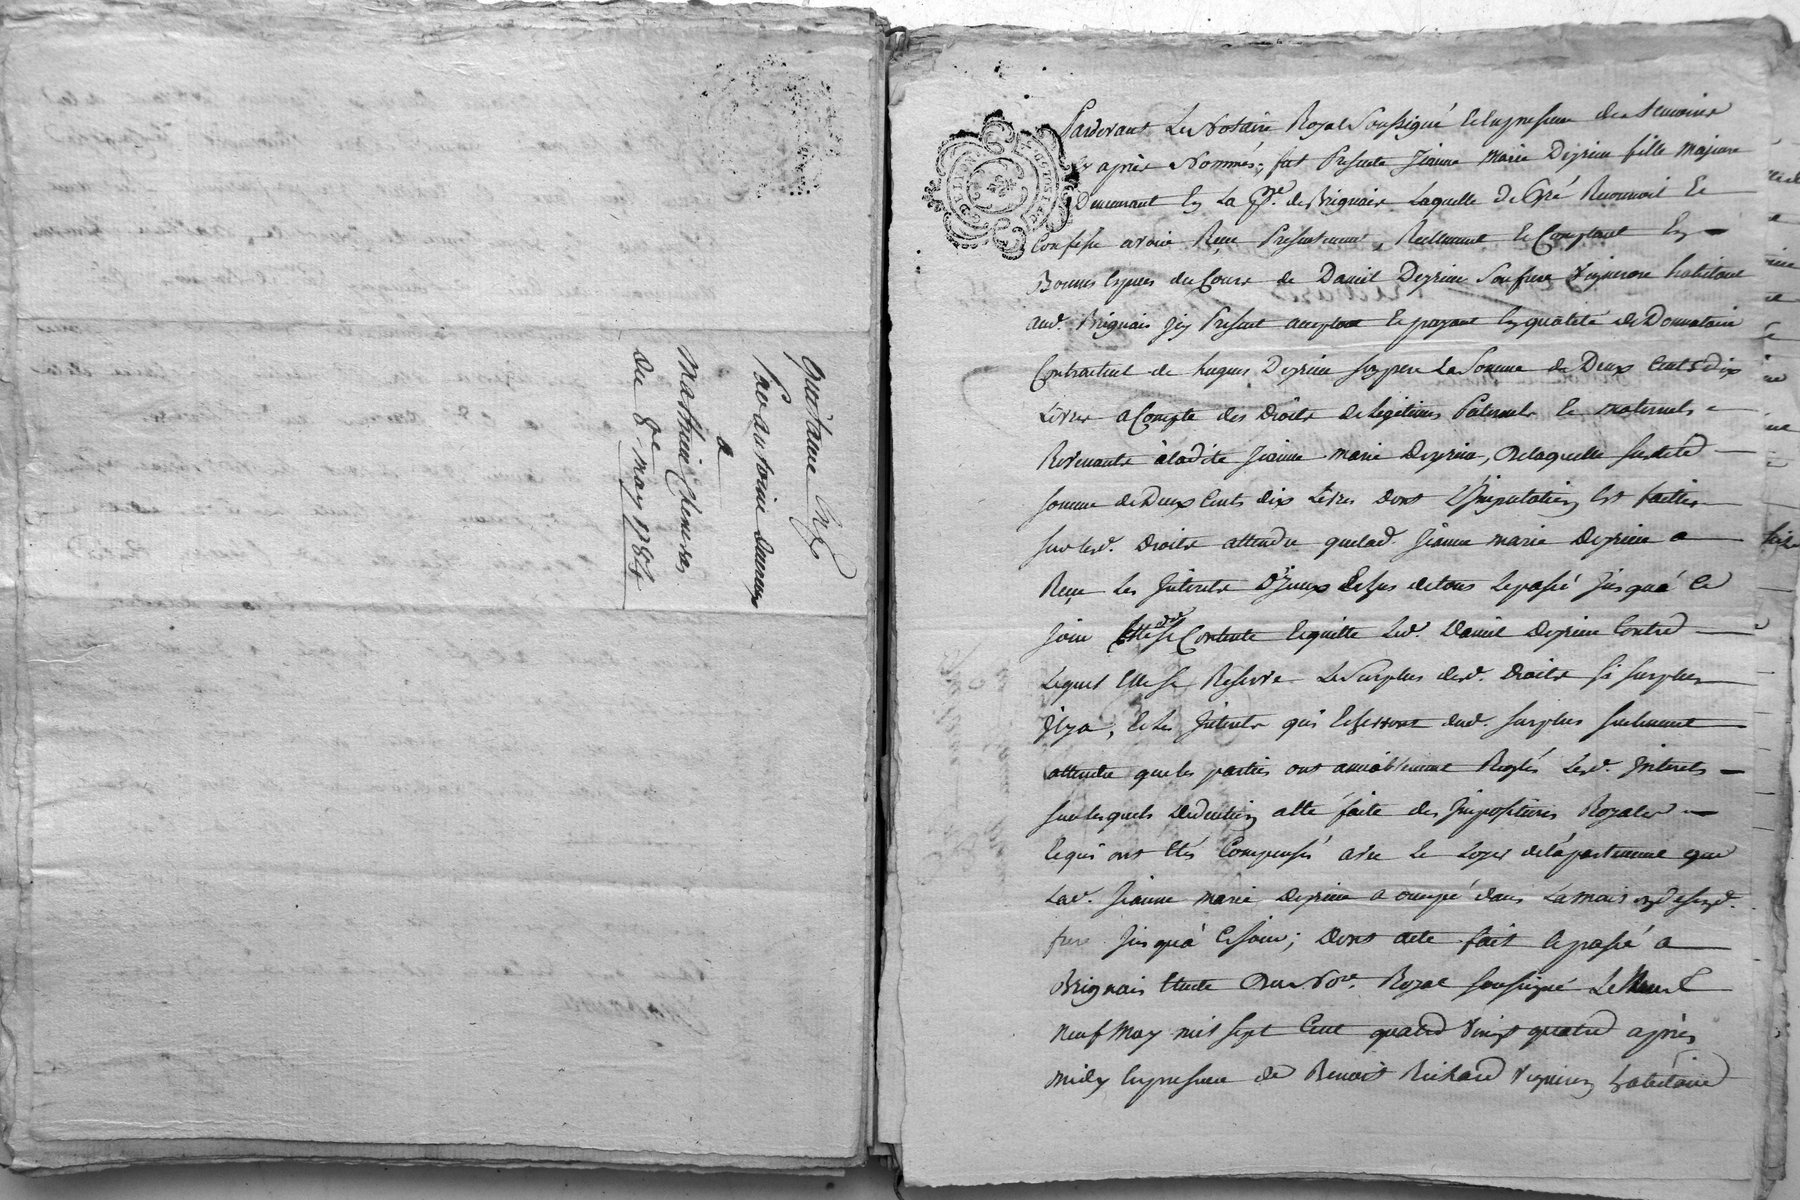 quittance
Par antoine
a
Mathieu
du 8e may 1784
Pardevant Le Notaire Royal Soussigné et en presence des temoins
cy après Nommés, fut Presente Jeanne marie Deprieu fille majeure
Demeurant en La psse. de Brignais Laquelle De Gré Reconnoit et
Confesse avoir Reçu Presentement, Reellement et Comptant en
Bonnes Espeses du Cours de Daniel Deprieu Son frere Vigneron habitant
aud. Brignais icy Present acceptant et payant en qualité de Donnataire
Contractuel de hugues Deprieu son pere La Somme de Deux Cents dix
Livres a Compte des Droits de Legitimes Paternels et maternels
Revenants à ladite Jeanne marie Deprieu, de laquelle susdite
somme de Deux Cents dix Livres dont L'Imputation est faitte
sur lesd. Droits attendu quelad. Jeanne marie Deprieu a
Reçu Les Interets D'Iceux de tous Le passé Jusquà Ce
Jour Elle se Contente et quitte Led. Daniel Deprieu Contre
Lequel Elle se Reserve Le Surplus desd. Droits si surplus
Il y a, et Les Interets qui dud. surplus seulement
attendu que les parties ont amiablement Reglés Lesd. Interets
sur lesquels Deduction a été faite des Impositions Royales
et qui ont étés Compensés avec Le Loyer de l'apartement que
Lad. Jeanne marie Deprieu a occupé dans La maison de sond.
frere Jusquà Ce Jour; Dont acte fait et passé a
Brignais Etude Du Nore. Royal soussigné Le
neuf May mil sept Cent quatre Vingt quatre après
midy en presence de Benoit Richard Vigneron habitant
G. DE LYON